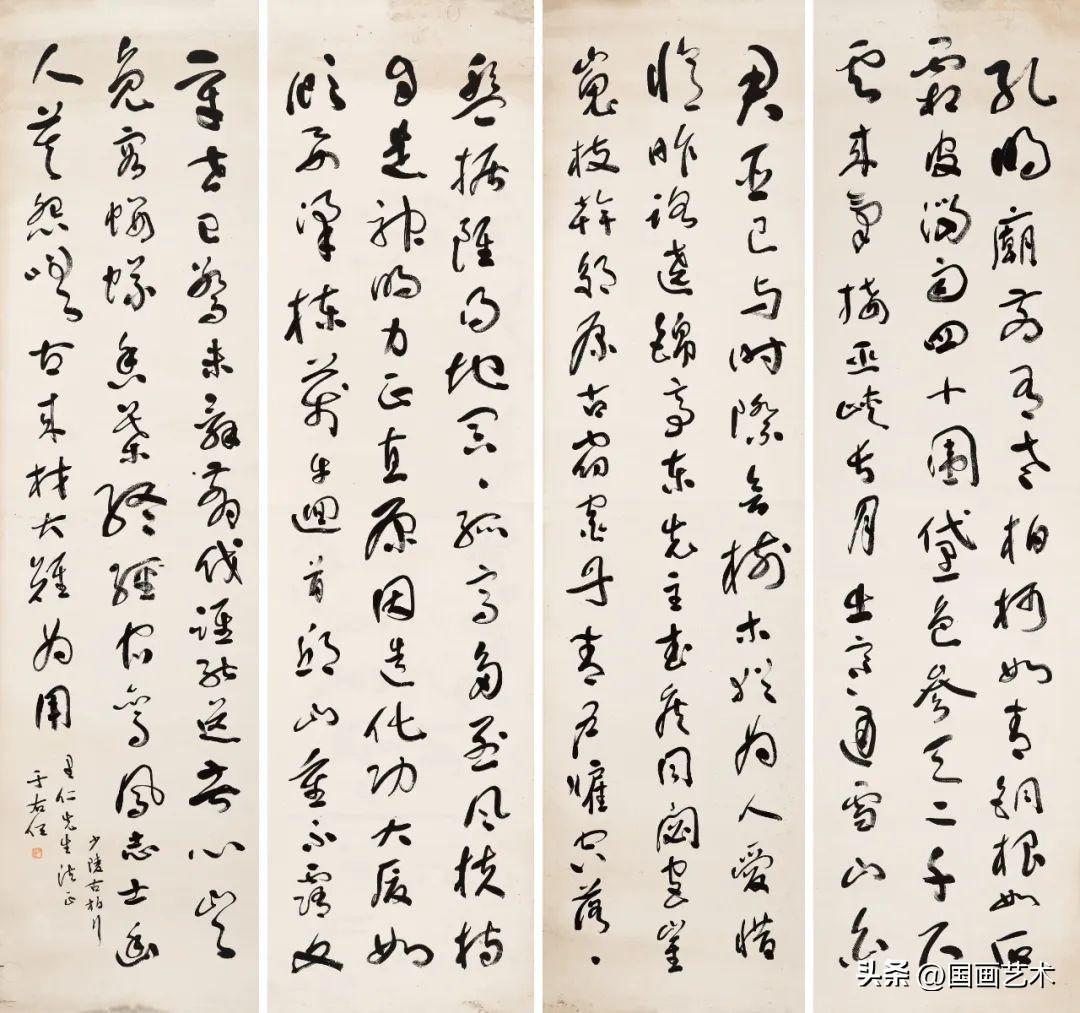 孔明廟前有老柏柯如青銅根如石
霜皮溜雨四十圍黛色參天二千尺
雲來氣接巫峽長月出寒通雪山白
君臣已與時際會樹木猶為人愛惜
憶昨路遶錦亭東先主武侯同閟宮崔
嵬枝幹郊原古窈窕丹青戶牖空落〻
盤據雖得地冥〻孤高多烈風扶持
自是神明力正直原因造化功大廈如
傾要梁棟萬牛迴首邱山重不露文
章世已驚未辭翦伐誰能送苦心豈
免容螻蟻香葉終經宿鸞鳳志士幽
人莫怨嗟古來材大難為用
少陵古柏行
里仁先生法正
于右任
头条 @国画艺术